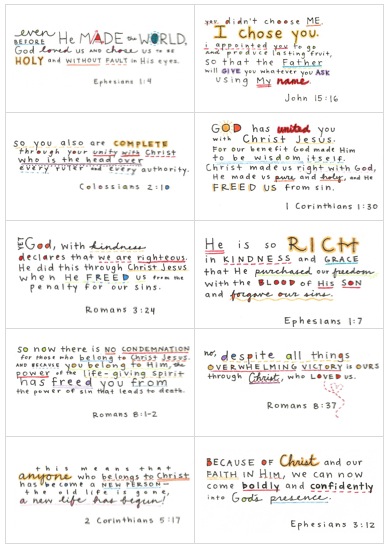 even
BEFORE He MADE the WORLD,
God loved us and chose us to be
HOLY and WITHOUT FAULT in His eyes.
Ephesians 1:4
you didn't choose ME.
I chose you.
i appointed you to go
and produce lasting fruit,
so that the Father
will GIVE you whatever you ASK
using My name.
John 15:16
so you also are COMPLETE
through your unity with Christ
who is the head over
every ruler and every authority.
Colossians 2:10
GOD has united you
with Christ Jesus.
For our benefit God made Him
to be wisdom itself.
Christ made us right with God,
He made us pure and holy, and He
FREED US from sin.
1 Corinthians 1:30
YET God, with kindness
declares that we are righteous.
He did this through Christ Jesus
when He FREED us from the
penalty for our sins.
Romans 3:24
He is so RICH
in KINDNESS and GRACE
that He purchased our freedom
with the BLOOD OF His SON
and forgave our sins.
Ephesians 1:7
so now there is NO CONDEMNATION
for those who belong to Christ Jesus.
AND BECAUSE you belong to Him, the
power of the life-giving spirit
has freed you from
the power of sin that leads to death.
Romans 8:1-2
no, despite all things
OVERWHELMING VICTORY is OURS
through Christ, who LOVED us.
Romans 8:37
this means that
anyone who belongs to Christ
has become a NEW PERSON—
the old life is gone,
a new life has begun!
2 Corinthians 5:17
BECAUSE OF Christ and our
FAITH IN HIM, we can now
come boldly and confidently
into God's presence.
Ephesians 3:12